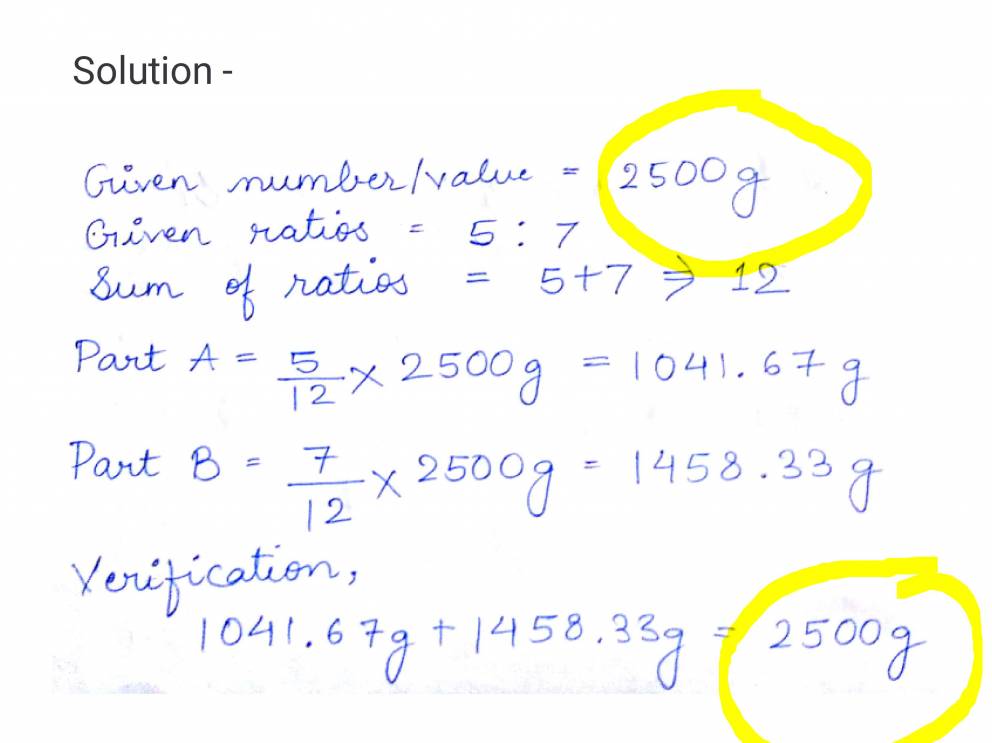 Solution -
Given number/value = 2500g
Given ratios = 5 : 7
Sum of ratios = 5+7 ⇒ 12
Part A = 5/12 × 2500g = 1041.67 g
Part B = 7/12 × 2500g = 1458.33 g
Verification,
1041.67g + 1458.33g = 2500g